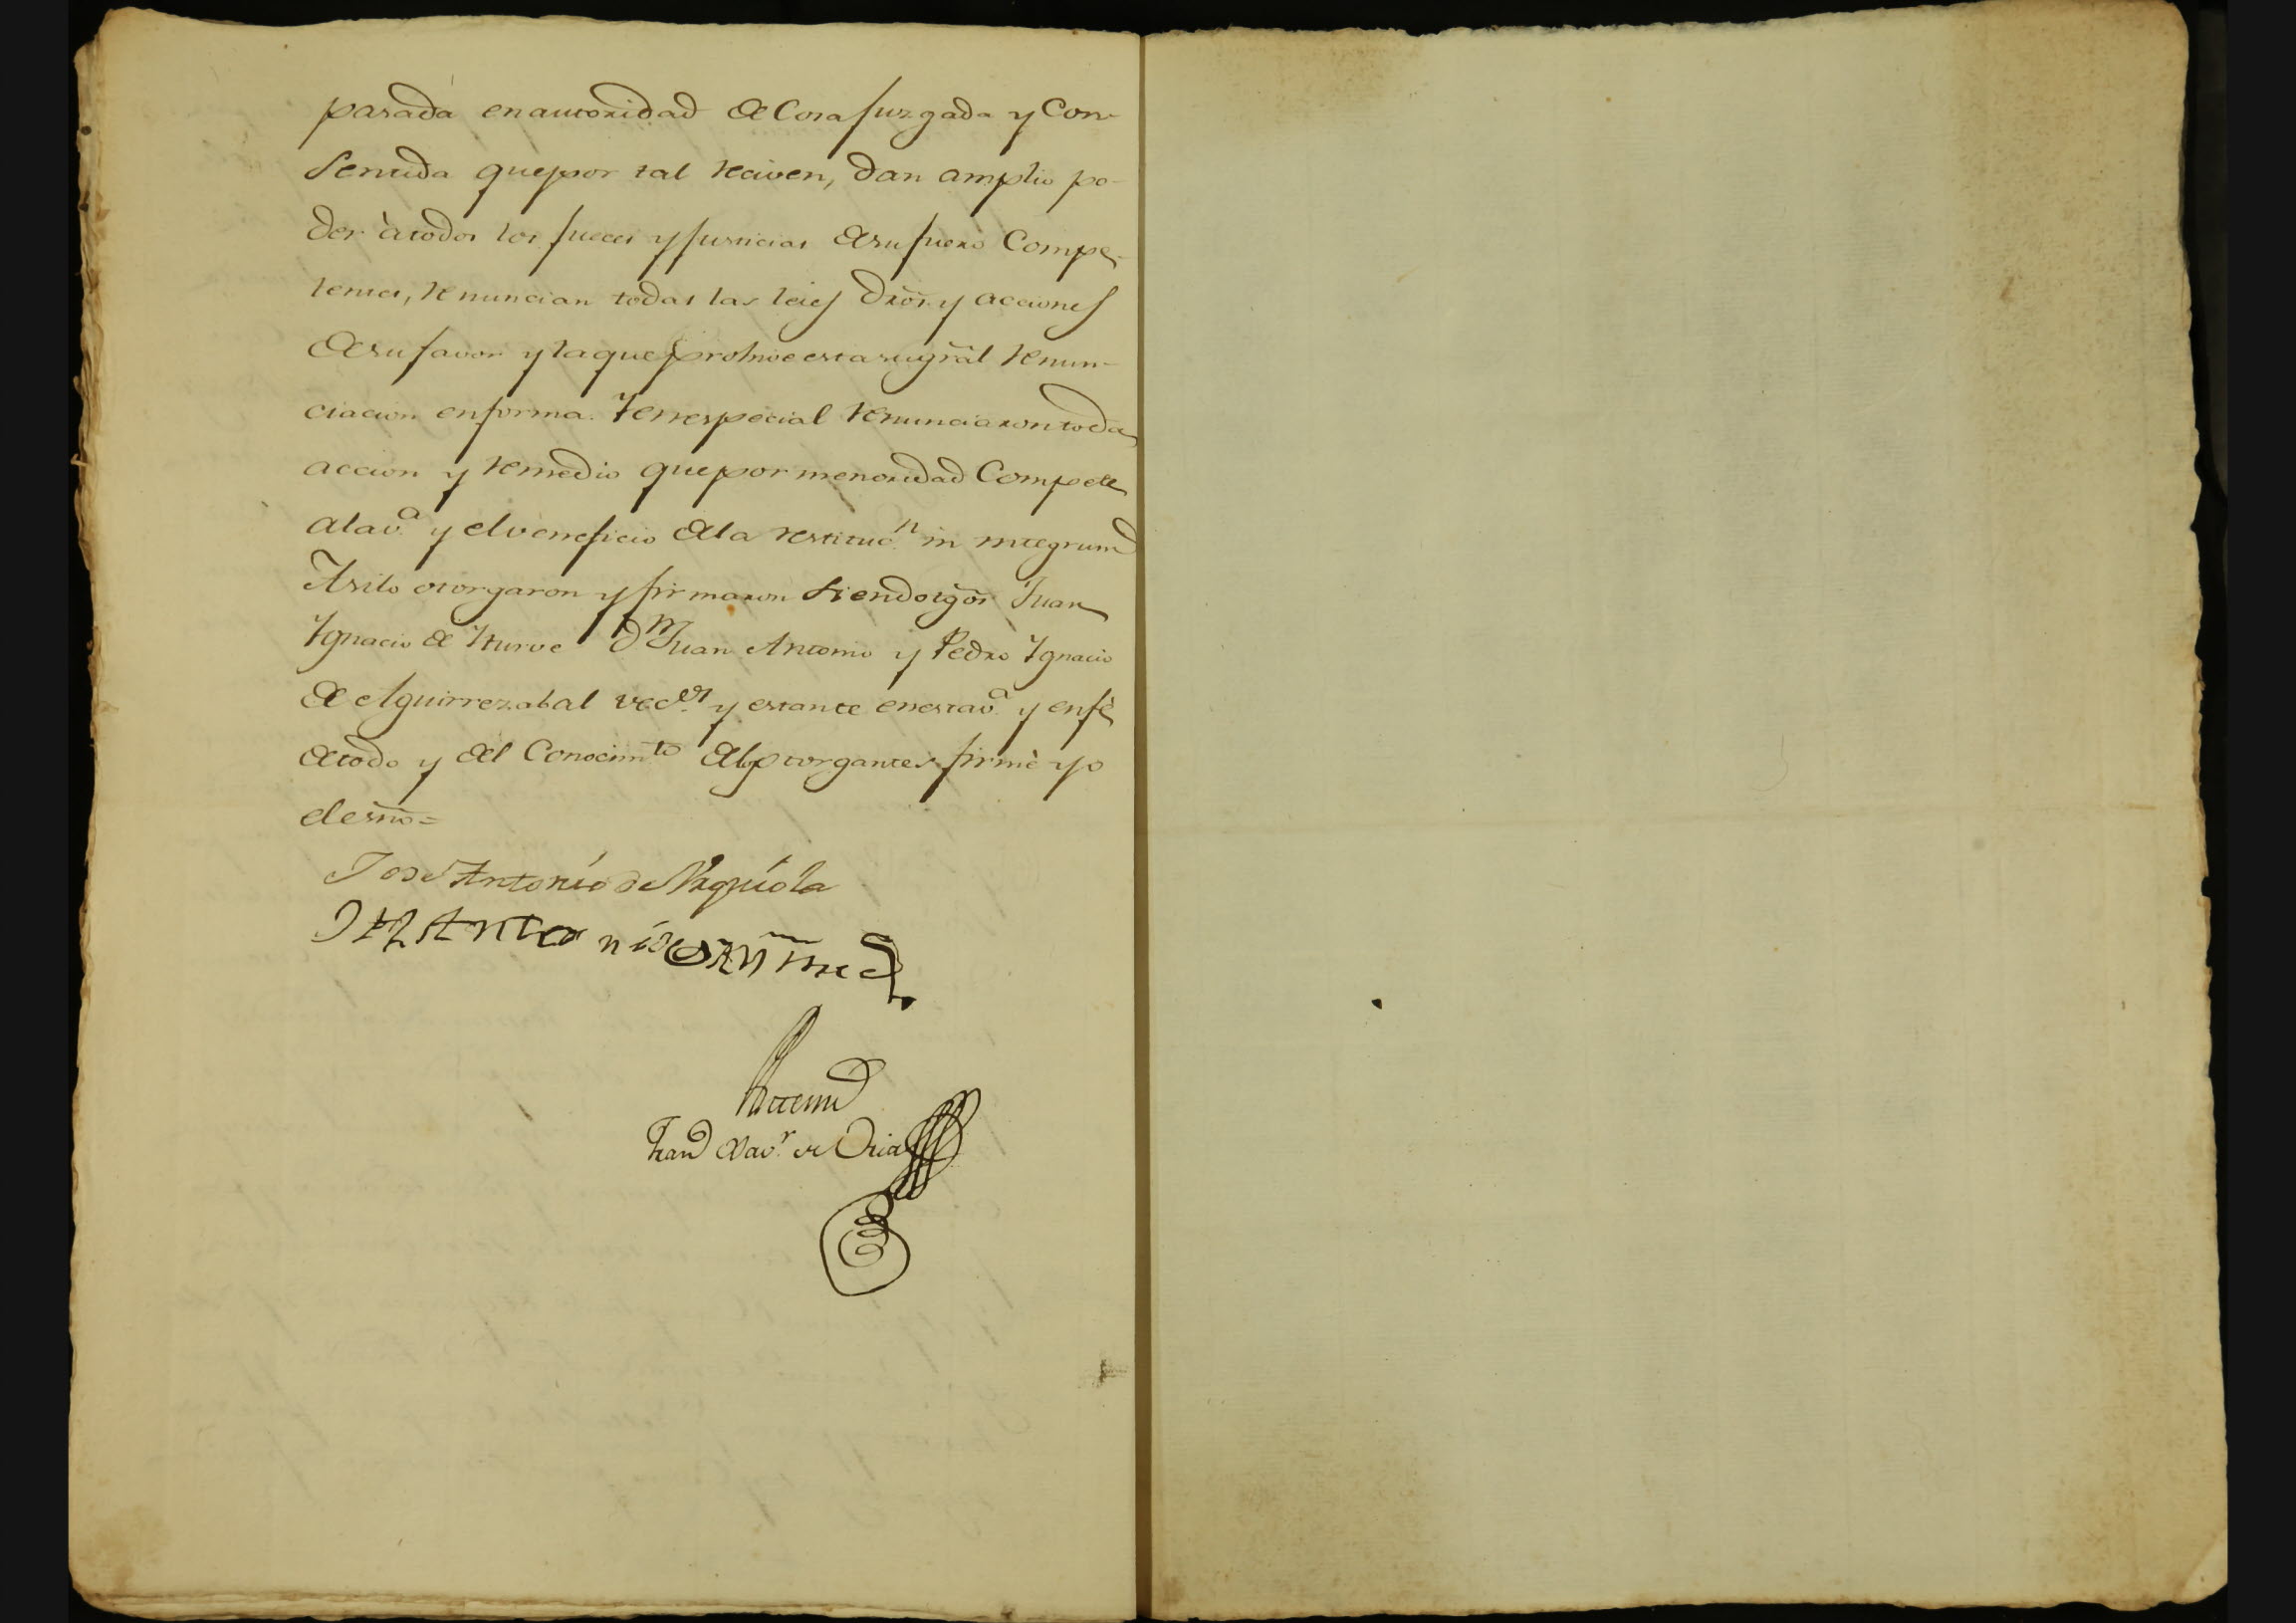 pasada en autoridad de Cosa Juzgada y Con-
sentida que por tal reciven, dan amplio po-
der à todos los Jueces y Justicias de su fuero Compe-
tentes, renuncian todas las leies dr̃os y acciones
de su favor y la que prohive esta su gr̃al renun-
ciacion en forma. Y en especial renunciaron toda
accion y remedio que por menoridad Compete
a la v.ª y el veneficio de la restituc.n in integrum
Asi lo otorgaron y firmaron siendo tgõs Juan
Ygnacio de Yturve D.n Juan Antonio y Pedro Ygnacio
de Aguirrezabal vec.os y estante en esta v.ª y en fè
de todo y del Conocim.to de los otorgantes firmè yo
el esno̅=
Jose Antonio de
Antemi
Fran.co Xav.r de Oria